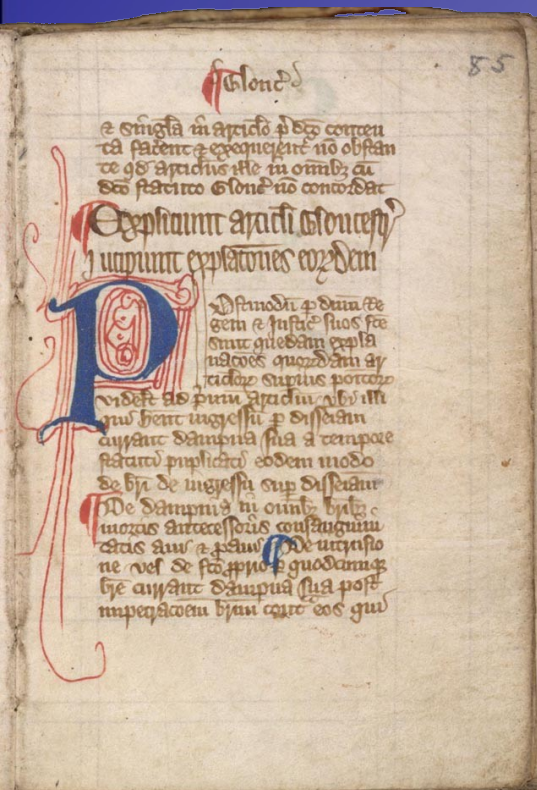 85
¶ Glouc̄
& singl̄a in articlo p̄dc̄o conten
ta facient & exequerent̄ nō obstan
te qd articlus ille in om̄ibȝ cū
dc̄o statuto Glouc̄ nō concordat
¶ Expliciunt articl̄i Gloucestr̄
Incipiunt explac̄ones eorꝝdem
Postmodū p̄ dnm̄ Re
gem & Justic̄ suos fc̄e
sunt quedam expla
nac̄oes quorꝝdam ar
ticlorꝝ supius positorꝝ
videlt ad p̄mū articlm̄ vbi illi
qui hent ingressū p̄ disseiam
currant dampna sua a tempore
statuti puplicati eodem modo
de br̄i de ingressu sup̄ disseiam̄
¶ De dampnis in om̄ibȝ br̄ibȝ
mortis antecessoris consanguini
tatis aui & p̄aui ¶ De intrusio
ne vel de fc̄o pprio p quodcumqȝ
br̄e currant dampna sua post
impetrac̄oem br̄ium cont̄ eos qui